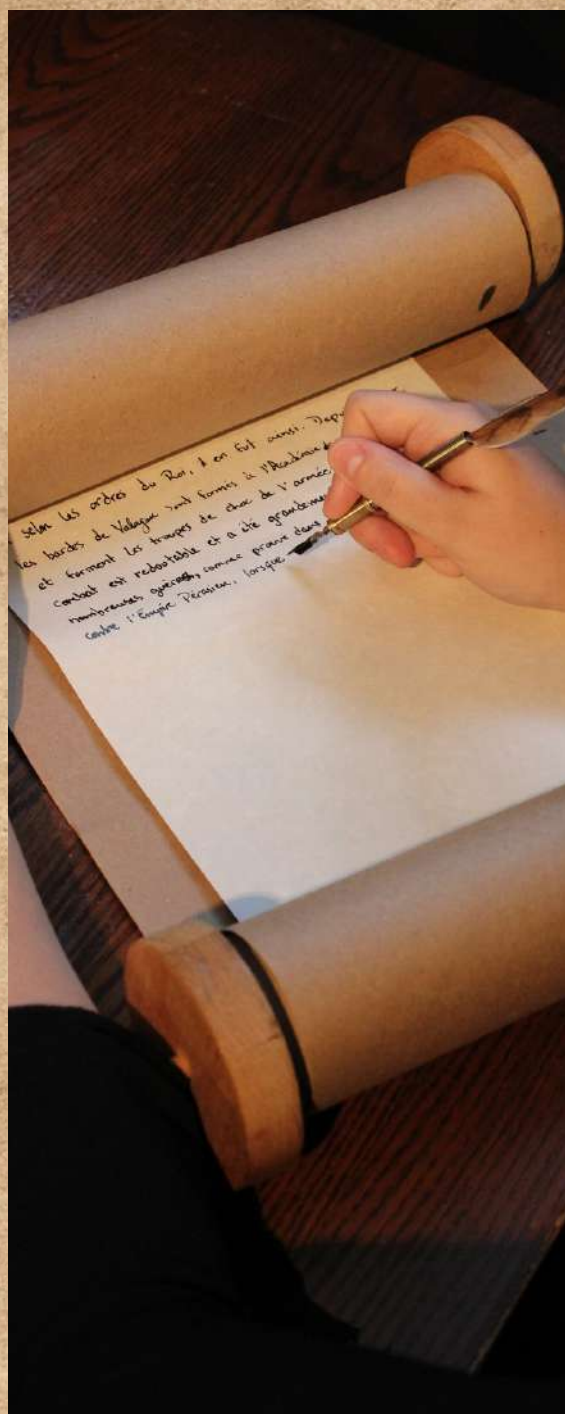 selon les ordres du Roi, il en fut ainsi. Depuis
les bardes de Valagne sont formés à l'Académie
et forment les troupes de choc de l'armée
combat est redoutable et a été grandement
nombreuses guerres, comme prouve dans
contre l'Empire Pérasien, lorsque